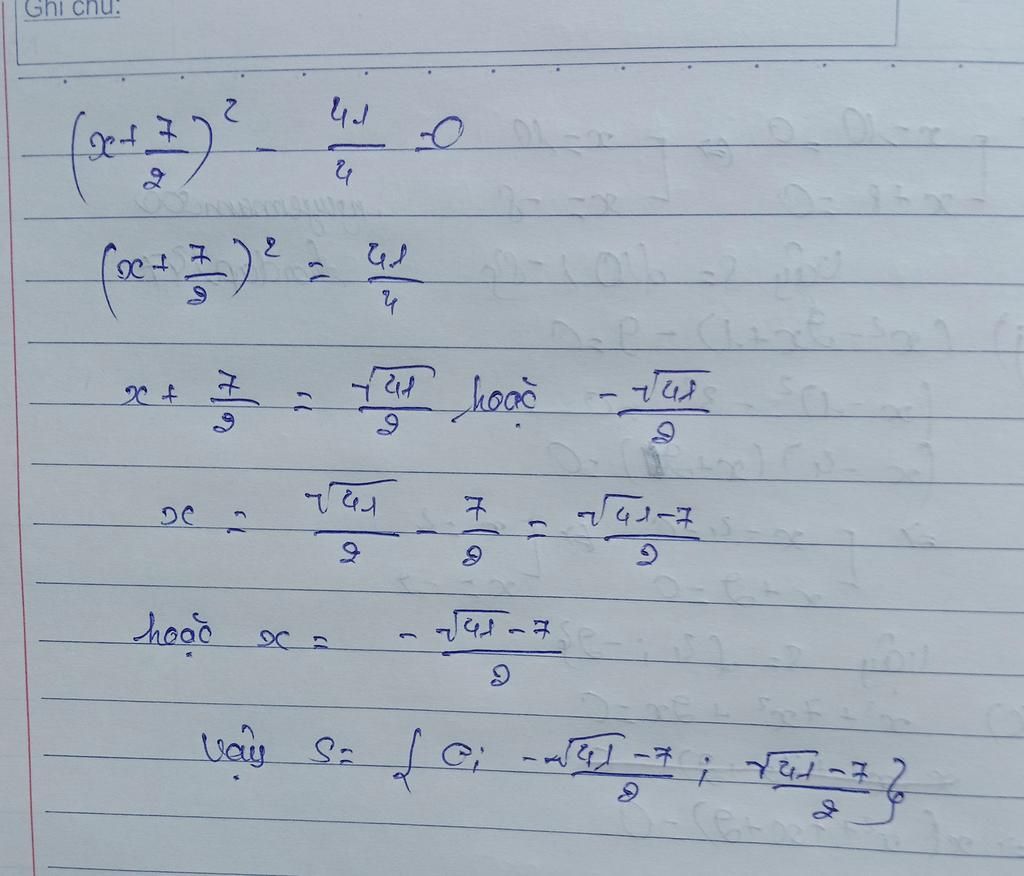 Ghi chú:
(x + 7/2)² - 41/4 = 0
(x + 7/2)² = 41/4
x + 7/2 = √41/2 hoặc -√41/2
x = √41/2 - 7/2 = (√41 - 7)/2
hoặc x = (-√41 - 7)/2
Vậy S = { 0; (-√41 - 7)/2 ; (√41 - 7)/2 }